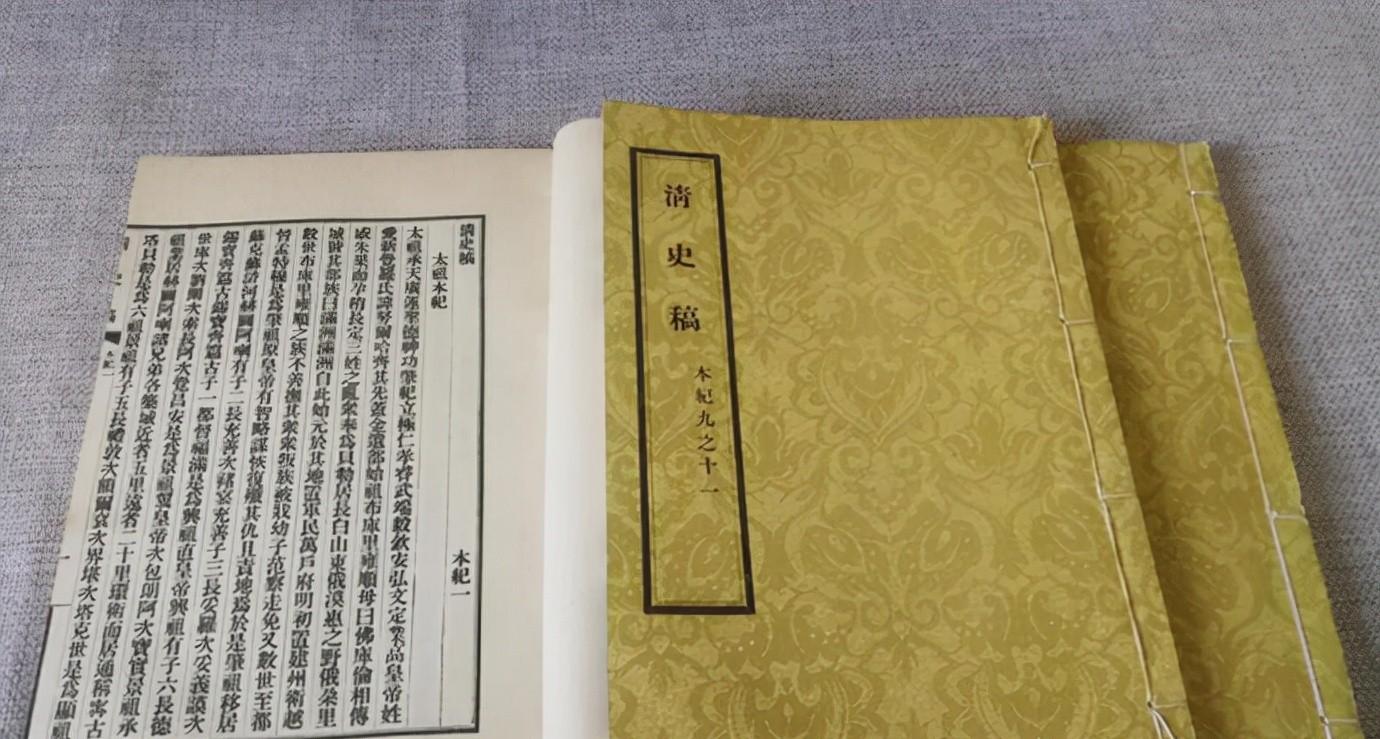 清史稿
本紀九之十一
清史稿
本紀一
太祖本紀
太祖承天廣運聖德神功肇紀立極仁孝睿武端毅欽安弘文定業高皇帝姓
愛新覺羅氏諱努爾哈齊其先蓋金遺部始祖布庫里雍順母曰佛庫倫相傳
感朱果而孕稍長定三姓之亂眾奉為貝勒居長白山東俄漠惠之野俄朵里
城號其部族曰滿洲滿洲自此始元於其地置軍民萬戶府明初置建州衛越
數世布庫里雍順之族不善撫其眾眾叛族被戕幼子范察走免又數世至都
督孟特穆是為肇祖原皇帝有智略謀恢復殲其仇且責地焉於是肇祖移居
蘇克蘇滸河赫圖阿喇有子二長充善次褚宴充善子三長妥羅次妥義謨次
錫寶齊篇古錫寶齊篇古子一都督福滿是為興祖直皇帝興祖有子六長德
世庫次劉闡次索長阿次覺昌安是為景祖翼皇帝次包朗阿次寶實景祖承
祖業居赫圖阿喇諸兄弟各築城近者五里遠者二十里環衛而居通稱寧古
塔貝勒是為六祖景祖有子五長禮敦次額爾袞次界堪次塔克世是為顯祖